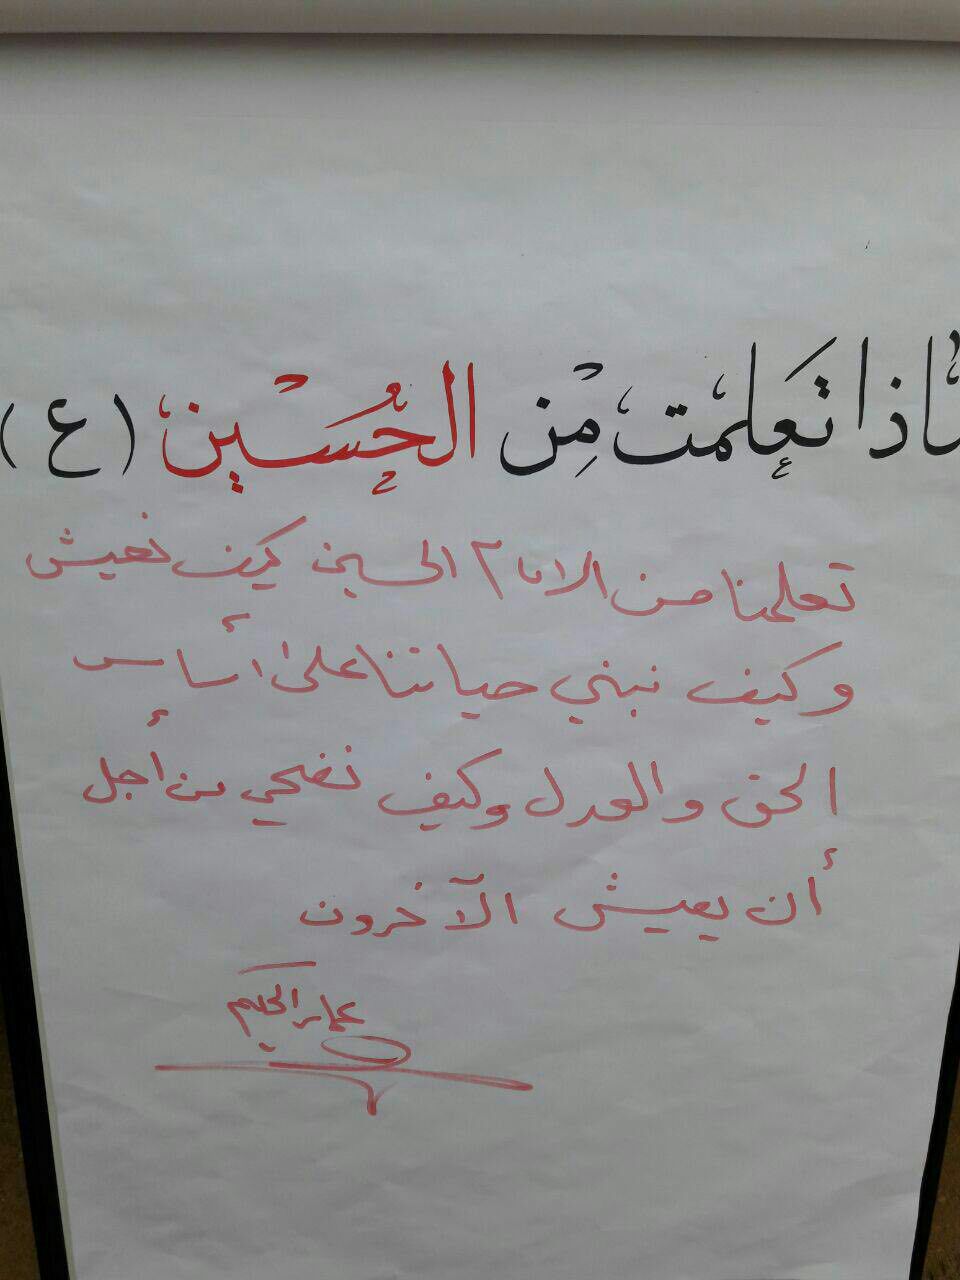 ماذا تعلمت من الحسين (ع)
تعلمنا من الامام الحسين كيف نعيش
وكيف نبني حياتنا على أساس
الحق والعدل وكيف نضحي من أجل
أن يعيش الآخرون
عمار الحكيم